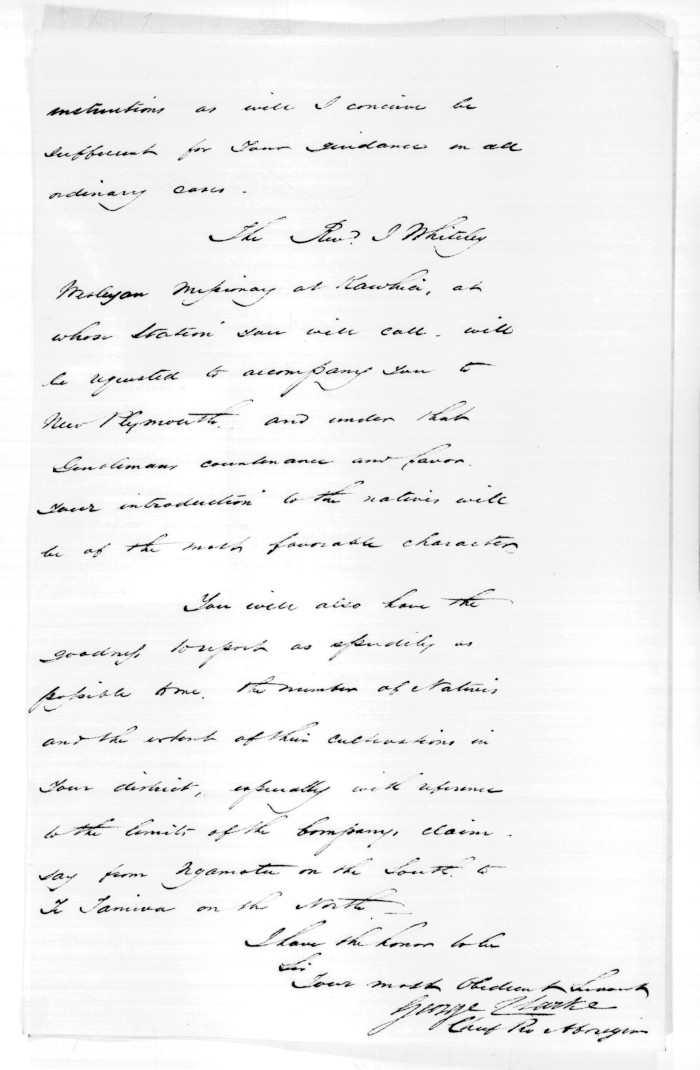 instructions as will I conceive be
sufficient for Your guidance in all
ordinary cases.
The Revd. J Whiteley
Wesleyan Missionary at Kawhia, at
whose Station you will call. will
be requested to accompany You to
New Plymouth. and under that
Gentlemans countenance and favor.
Your introduction to the natives will
be of the most favorable character
You will also have the
goodness to report as speedily as
possible to me. the number of Natives
and the extent of their cultivations in
Your district, especially with reference
to the limits of the Companys claim.
say from Ngamotu on the South. to
Te Taniwa on the North.
I have the honor to be
Sir
Your most Obedient Servant
George Clarke
Chief Pro Aborigin